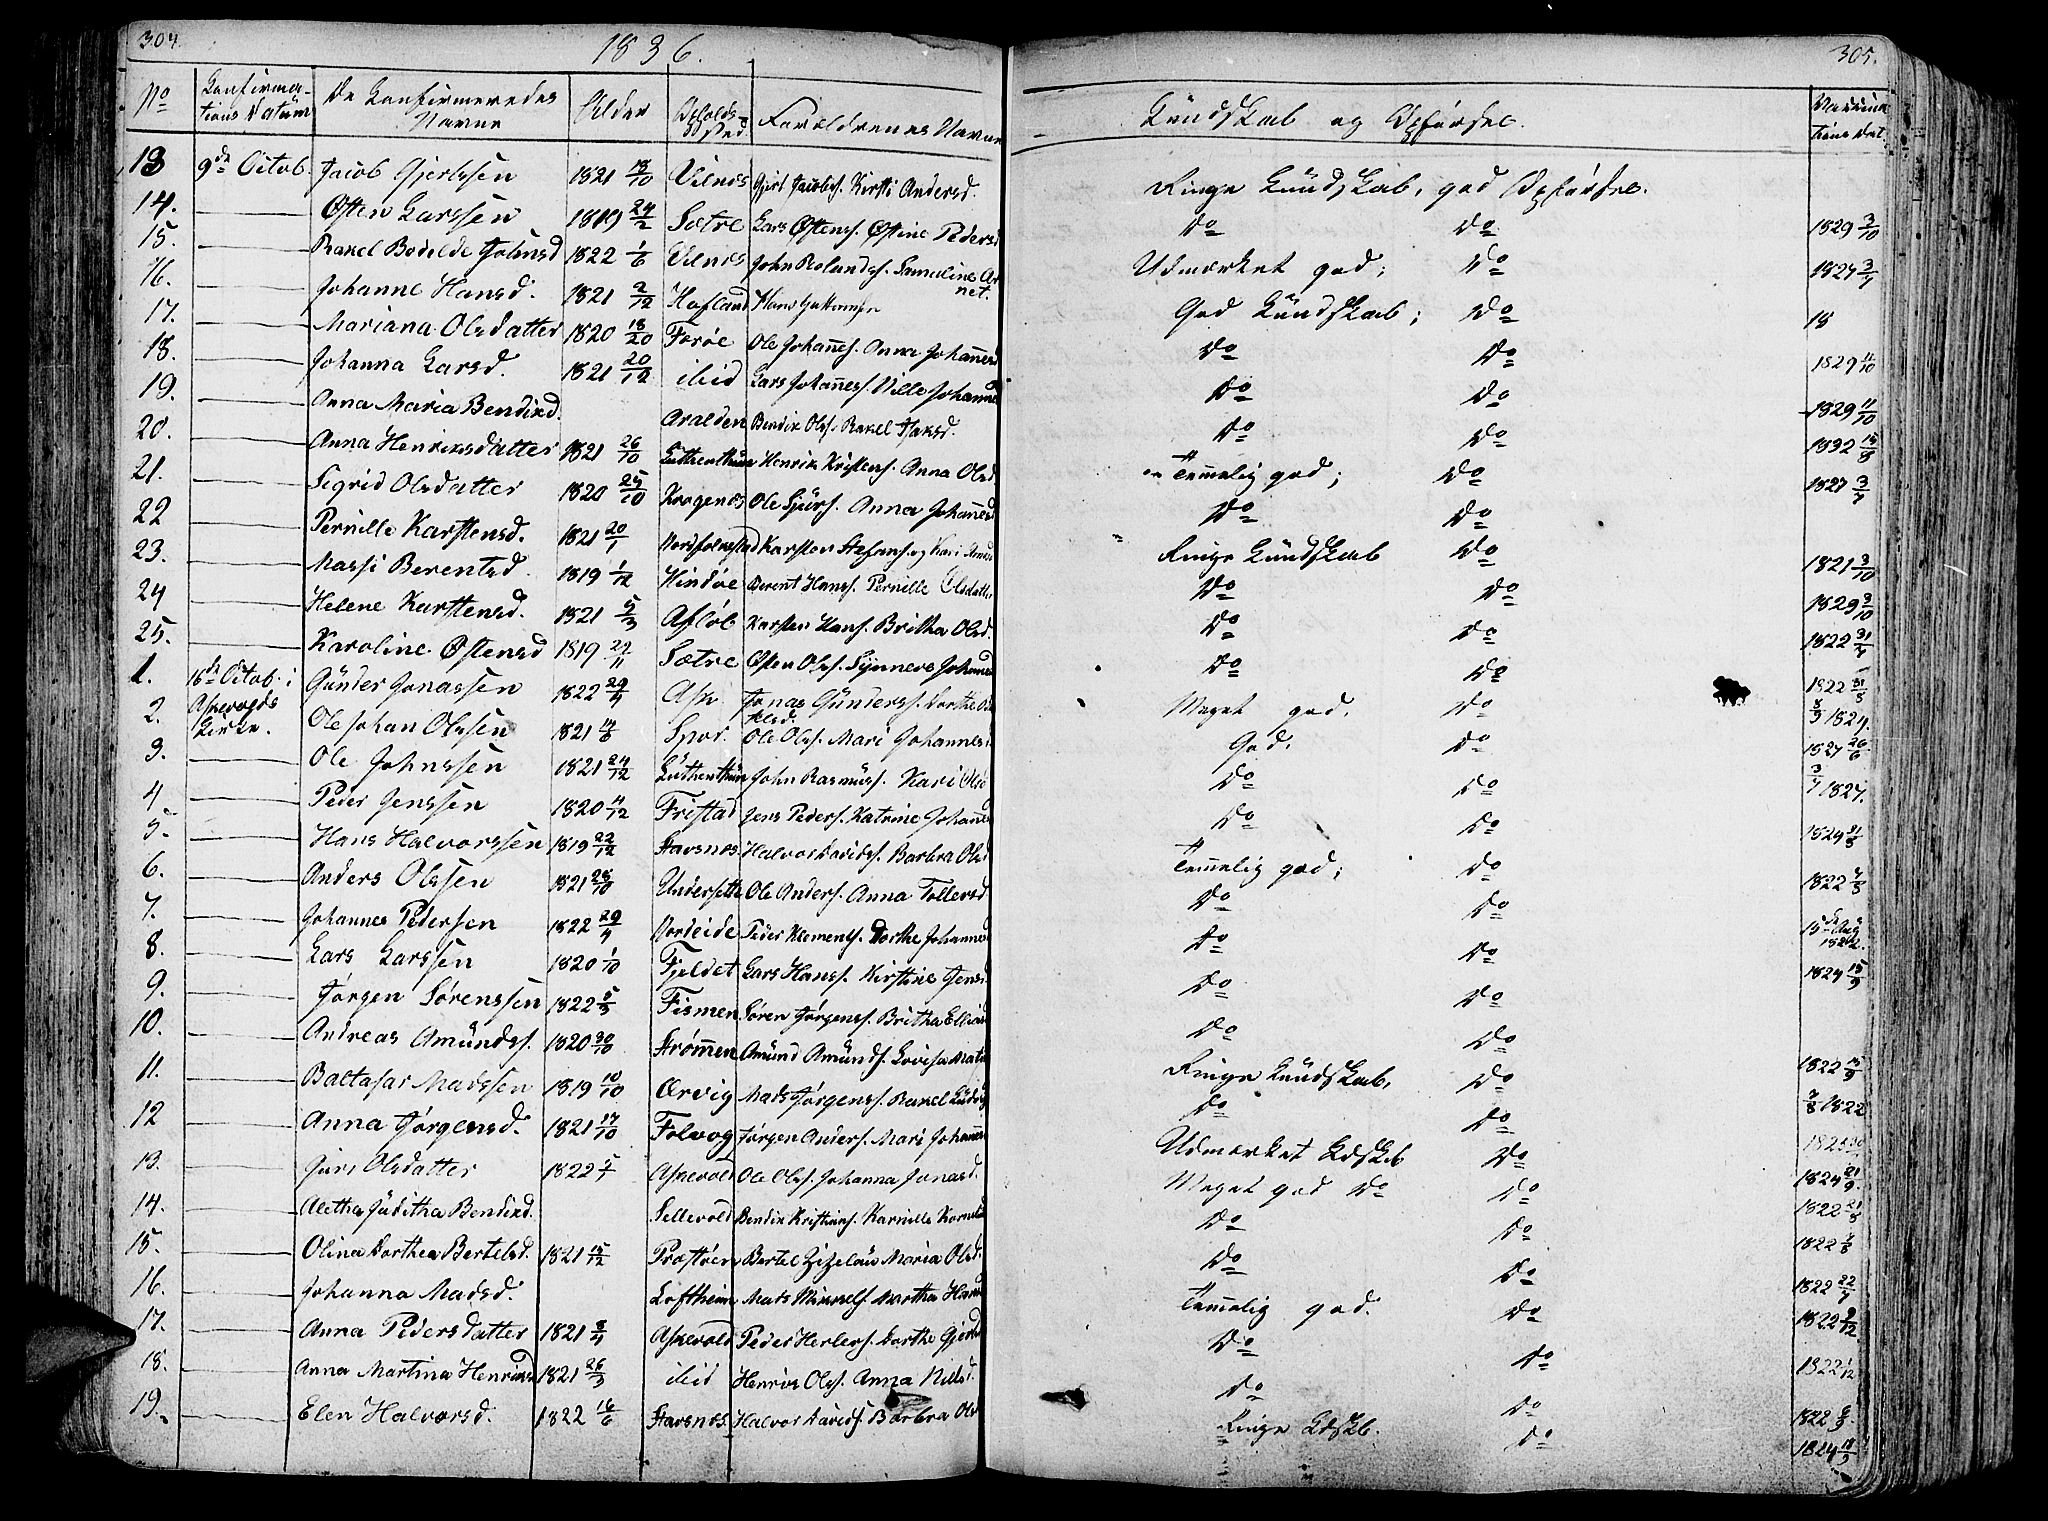 304.
1836.
No Confirmations Datum De Confirmeredes Navne Alder Opholds-Sted Foreldrenes Navne
13 9de Octob. Jacob Gjertssen 1821 18/10 Vilnes Gjert Jacobs. Kirsti Andersd.
14. Østen Larssen 1819 24/2 Sætre Lars Østens. Østine Pedersd
15. Rakel Bodelde Johnsd 1822 1/6 Vilnes John Rolands. Samuline
16. Johanne Hansd. 1821 2/12 Hafland Hans
17. Mariana Olsdatter 1820 18/20 Forøe Ole Johanes. Anna Johanesd
18. Johanna Larsd. 1821 20/12 ibid Lars Johanes. Nille Johanes
19. Anna Maria Bendixd. Aralden Bendix Ols. Rakel Isaksd.
20. Anna Henriksdatter 1821 26/10 Henrik Kristens. Anna Olsd
21. Sigrid Olsdatter 1820 25/10 Kragenes Ole Sjurs. Anna Johanesd
22 Pernille Karstensd. 1821 20/1 Karsten Stefans. og Kari
23. Massi Berentsd. 1819 1/12 Hindøe Berent Hanss. Pernille Olsdatter
24 Helene Karstensd. 1821 5/3 Afløb Karsten Hans. Britha Olsd.
25. Karoline Østensd 1819 22/11 Sætre Østen Ols. Synneve Johanes
1. 16de Octob. i Askevolds Kirke. Günder Jonassen 1822 29/4 Ask Jonas Günders. Dorthe
2. Ole Johan Olssen 1821 14/6 Spor. Ole Ols. Mari Johannesd
3. Ole Johnssen 1821 24/12 John Rasmüss. Kari Olsd
4. Peder Jenssen 1820 4/12 Fristad Jens Peders. Katrine Johanes
5. Hans Halvorssen 1819 22/12 Stavsnes Halvor Davids. Barbra Olsd
6. Anders Olssen 1821 28/10 Ole Anders. Anna Tollevsd
7. Johannes Pedersen 1822 29/4 Nordeide Peder Klements. Dorthe Johannes
8. Lars Larssen 1820 1/10 Fjeldet Lars Hans. Kirstine Jensd
9. Jørgen Sørenssen 1822 5/3 Fismen Søren Jørgens. Britha
10. Andreas Amündss. 1820 30/10 Strømen Amünd Amünds. Lovisa
11. Baltasar Madssen 1819 10/10 Ørvig Mads Jørgens. Rakel
12 Anna Jørgensd. 1821 17/10 Folvog Jørgen Anders. Mari Johanes
13. Olsdatter 1822 Askevold Ole Ols. Johanna Jonasd.
14. Aletha Juditha Bendixd. Sellevold Bendix Kristians. Karnille
15. Olina Dorthea Bertelsd. 1821 15/12 Bertel Maria Olsd.
16. Johanna Madsd. Loftheim Mats Martha Hans
17. Anna Pedersdatter 1821 8/4 Askevold Peder Herlers. Dorthe
18. Anna Martina Henriksd 1821 26/3 ibid Henrik Ols. Anna Nilsd.
19. Elen Halvorsd. 1822 16/6 Stavsnes. Halvor Davids. Barbra Ols
305.
Kündskab og Opførsel. Vaccinations Dat.
Ringe Kündskab, god Opførsel.
Do Do 1829 3/10
Udmærket god; Do 1827 3/7
God Kündskab; Do 18
Do Do 1829 11/10
Do Do 1829 11/10
Do Do 1832 18/8
Temelig god; Do 1827 3/7
Do Do
Ringe Kündskab Do 1821 3/10
Do Do 1829 3/10
Do Do 1822 31/7
Do Do 1822 31/8
Meget god. Do 1824.
God. Do 1827 26/6
Do Do 3/7 1827.
Do Do 1824 31/8
Temelig god; Do 1822
Do Do
Do Do 1824 15/9
Do Do
Do Do 1822 15/9
Ringe Kündskab, Do 1822
Do Do
Udmærket Kdskb Do 1824 21/9
Meget god Do Do 1822 21/8
Do Do 1822
Do Do 1822 22/7
Temelig god. Do 1822
Do Do 1822 1/12
Do Do 1822
Ringe Kdskb. Do 1824 18/9